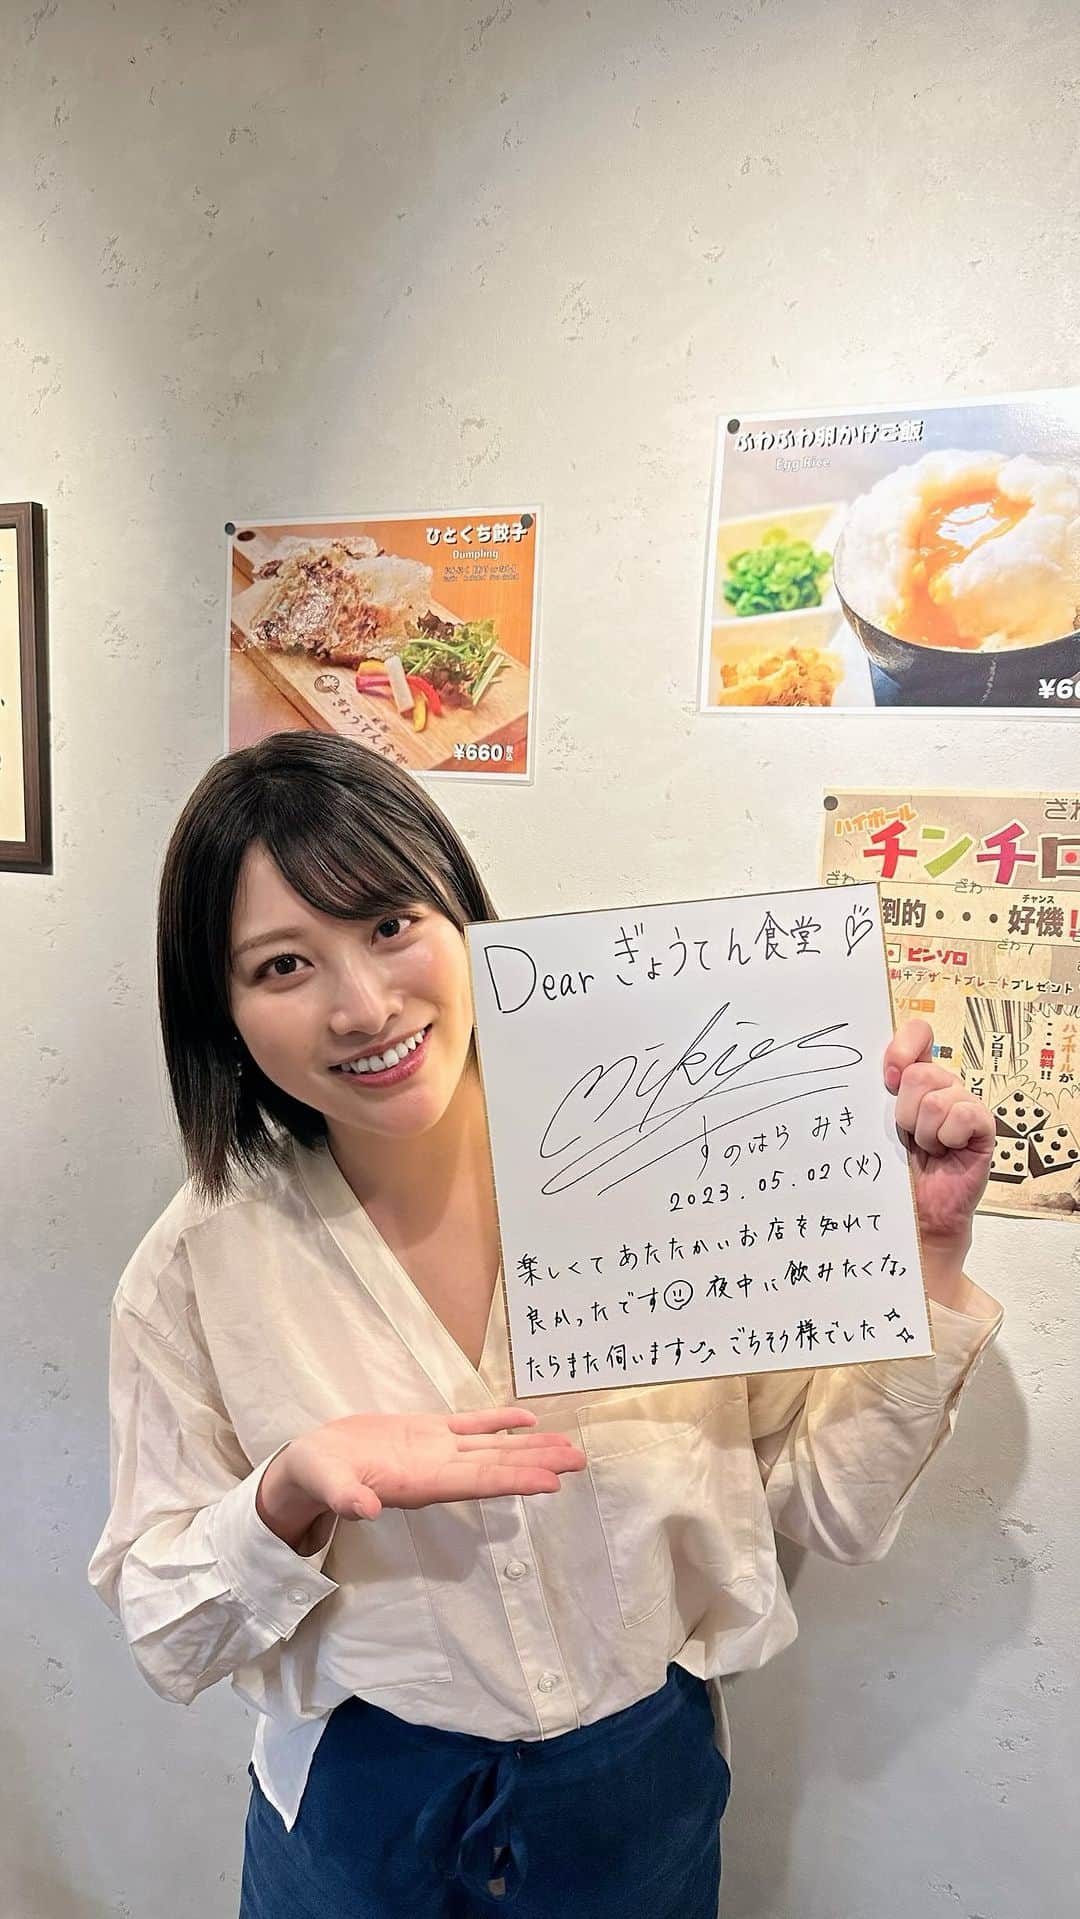 ふわふわ卵かけご飯
Egg Rice
ひとくち餃子
Dumpling
ぎょうてん食堂
¥660税込
ざわ
ハイボール
チンチロ
ざわ
ざわ
チャンス
倒的・・・好機!
ピンゾロ
料+デザートプレートプレゼント
ゾロ目
ハイボールが
・・無料!!
ゾロ目…!
Dear ぎょうてん食堂
mikies
すのはら みき
2023.05.02(火)
楽しくてあたたかいお店を知れて
良かったです 夜中に飲みたくなっ
たらまた伺います ごちそう様でした